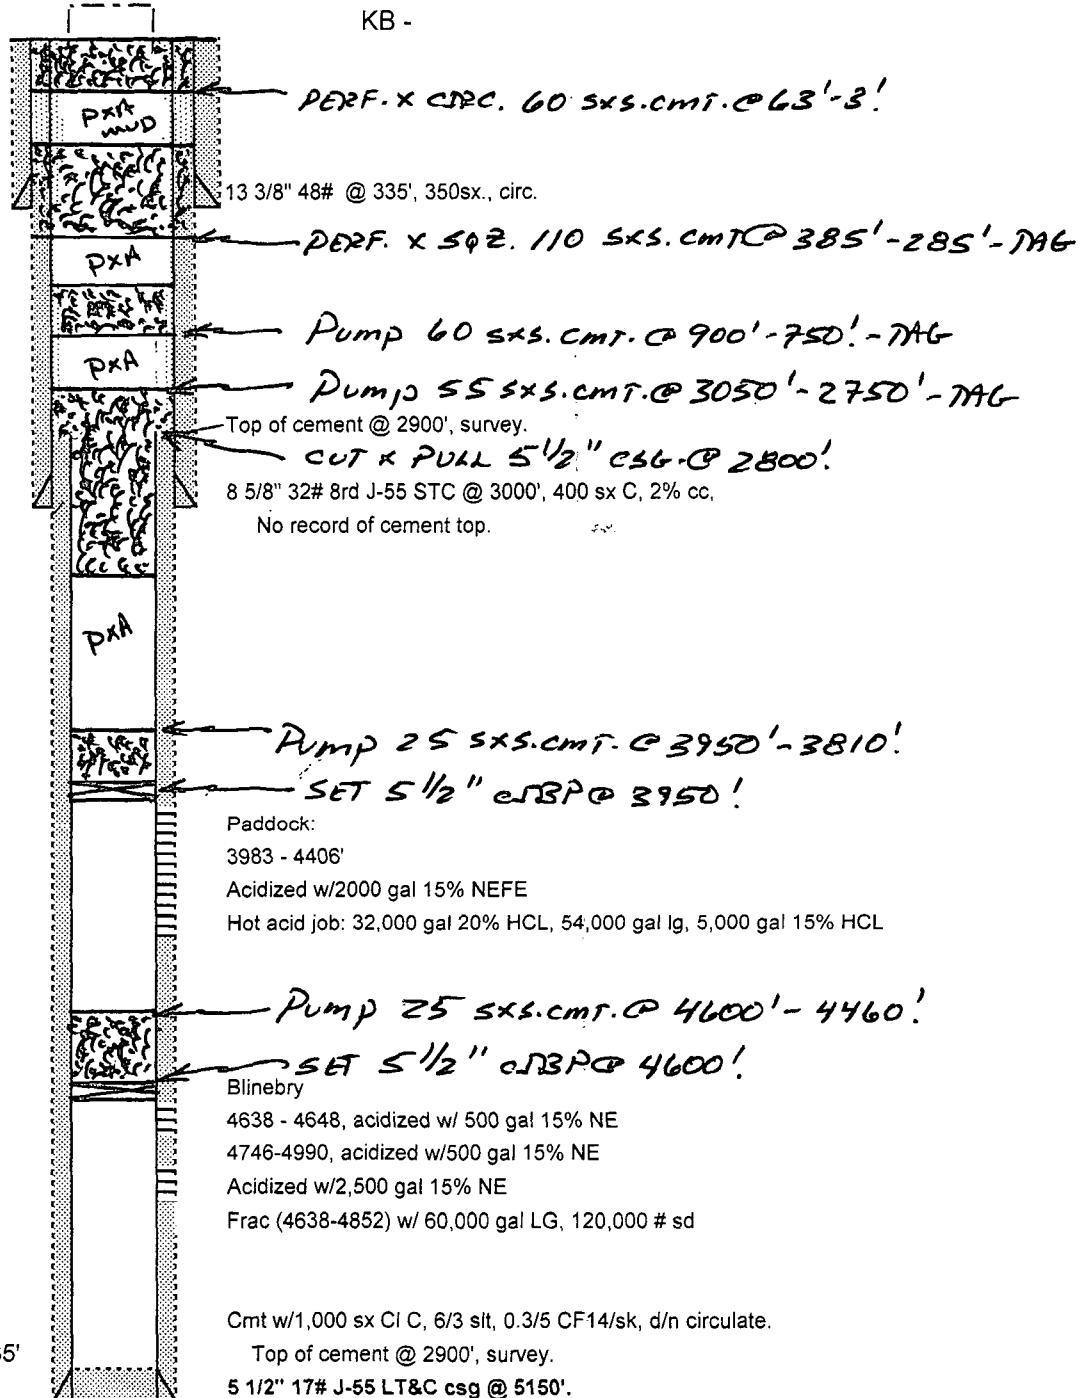 KB -
PERF. X CIRC. 60 SXS. CMT. @ 63'-3'.
PXA MUD
13 3/8" 48# @ 335', 350sx., circ.
PERF. X SQZ. 110 SXS. CMT @ 385'-285'-TAG
PXA
Pump 60 SXS. CMT. @ 900'-750'.-TAG
PXA
Pump 55 SXS. CMT. @ 3050'-2750'-TAG
Top of cement @ 2900', survey.
CUT X PULL 5 1/2" CSG. @ 2800'.
8 5/8" 32# 8rd J-55 STC @ 3000', 400 sx C, 2% cc,
No record of cement top.
PXA
Pump 25 SXS. CMT. @ 3950'-3810'.
SET 5 1/2" CIBP @ 3950'.
Paddock:
3983 - 4406'
Acidized w/2000 gal 15% NEFE
Hot acid job: 32,000 gal 20% HCL, 54,000 gal lg, 5,000 gal 15% HCL
Pump 25 SXS. CMT. @ 4600'-4460'.
SET 5 1/2" CIBP @ 4600'.
Blinebry
4638 - 4648, acidized w/ 500 gal 15% NE
4746-4990, acidized w/500 gal 15% NE
Acidized w/2,500 gal 15% NE
Frac (4638-4852) w/ 60,000 gal LG, 120,000 # sd
Cmt w/1,000 sx Cl C, 6/3 slt, 0.3/5 CF14/sk, d/n circulate.
Top of cement @ 2900', survey.
5 1/2" 17# J-55 LT&C csg @ 5150'.